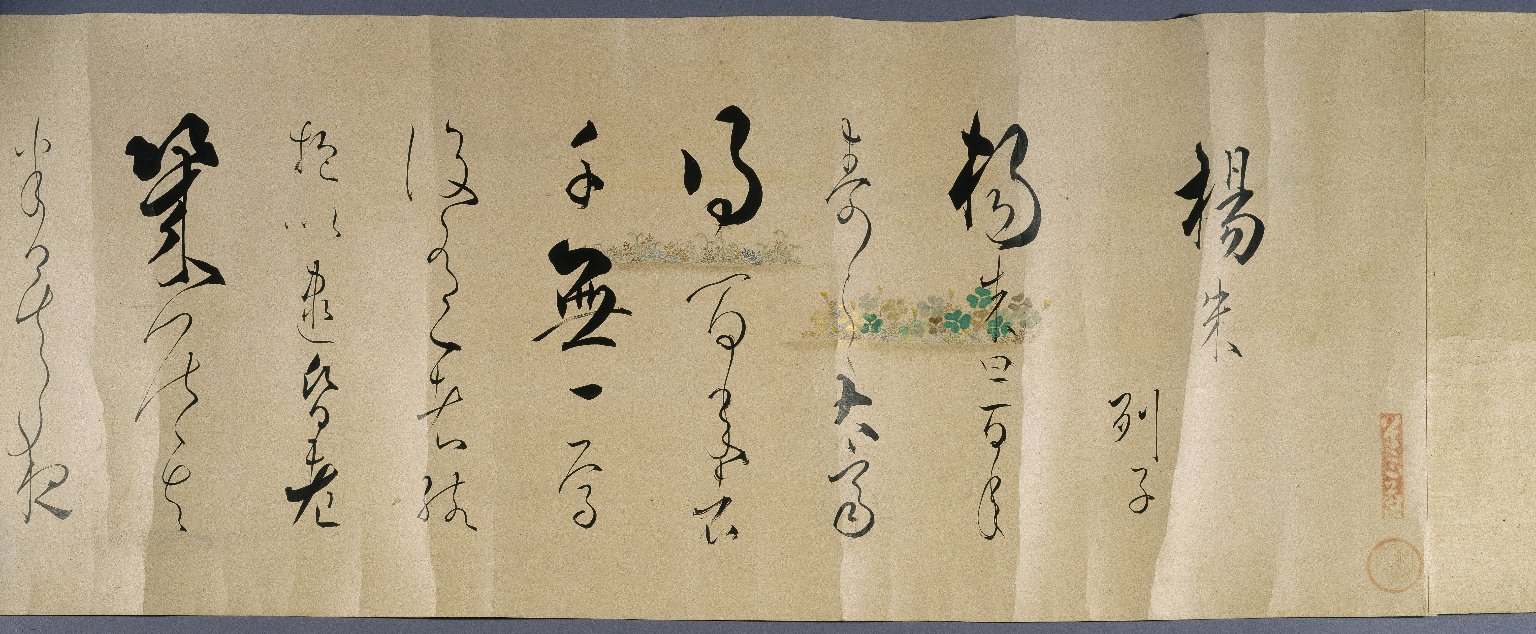 楊朱
列子
楊朱曰百年
壽之大齊
得百年者
千無一焉
設有一者孩
抱以逮昏老
幾居其
夜